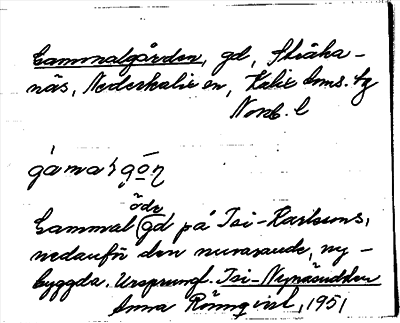 Gammalgården, gd, Stråka-
näs, Nederkalix en, Kalix kms. tg
Norrb. l
gàmaʹrgō̧n
öde
Gammal gd på Isi-Karlsens,
nedanför den nuvarande, ny-
byggda. Ursprungl. Isi-Nynäsudden
Anna Rönnqvist, 1951